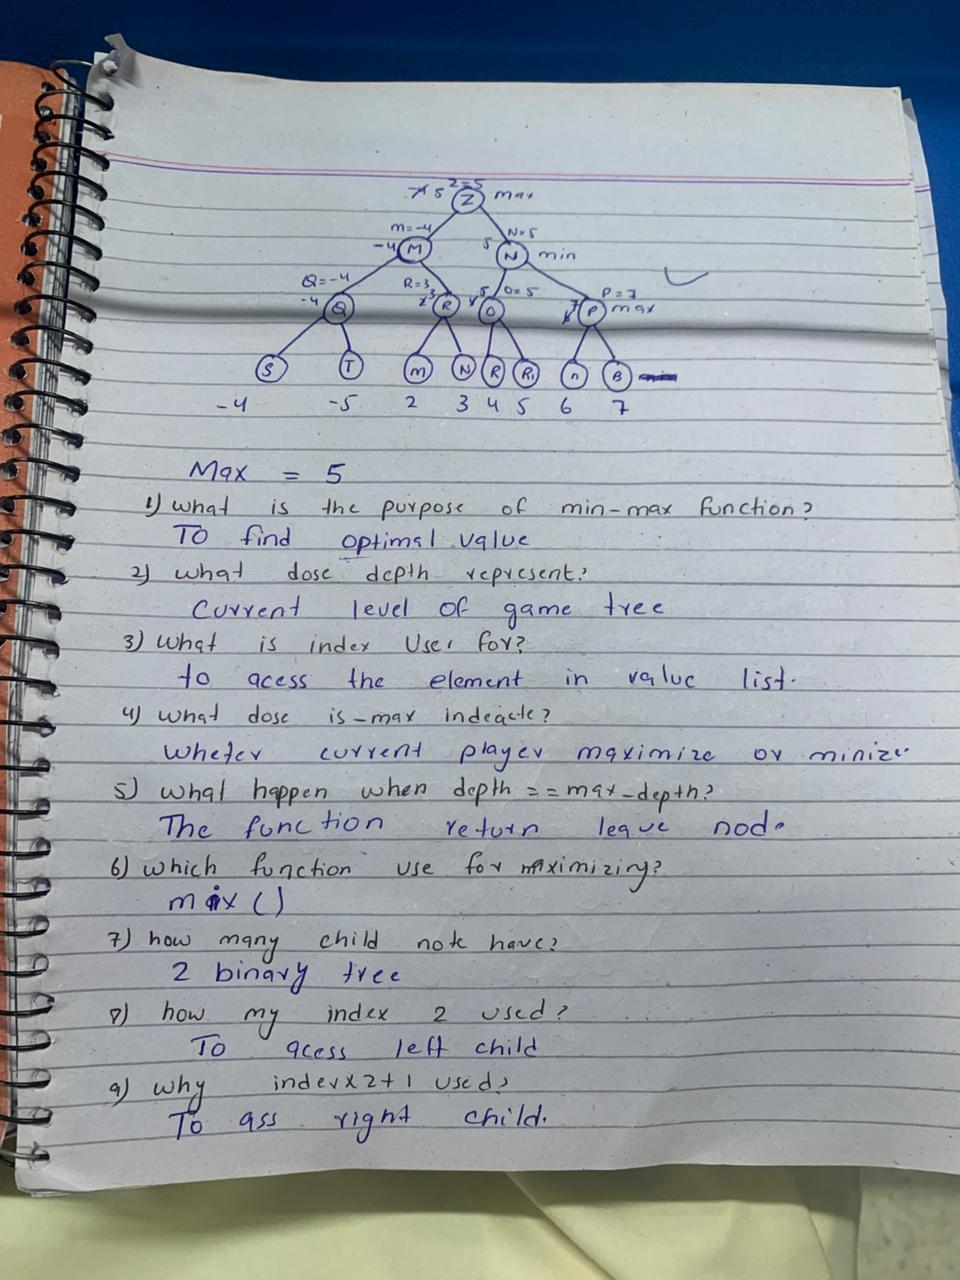 5 Z=5
Z max
M=-4 N=5
-4 M 5 N min
Q=-4 R=3 5 O=5 P=7
-4 Q 3 R O 7 P max
S T M N R R1 n B
-4 -5 2 3 4 5 6 7
Max = 5
1) what is the purpose of min-max function?
TO find optimal value
2) what dose depth represent?
Current level of game tree
3) What is index Use for?
to acess the element in value list.
4) what dose is-max indeacte?
Wheter current player maximize or minize
5) what happen when depth == max-depth?
The function return leave node
6) which function use for maximizing?
max ()
7) how many child note have?
2 binary tree
8) how my index 2 used?
To acess left child
9) why indexx2+1 used?
To ass right child.